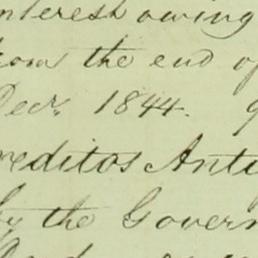 nterest owing
from the end of
Decr. 1844.
reditos Anti
by the Govern